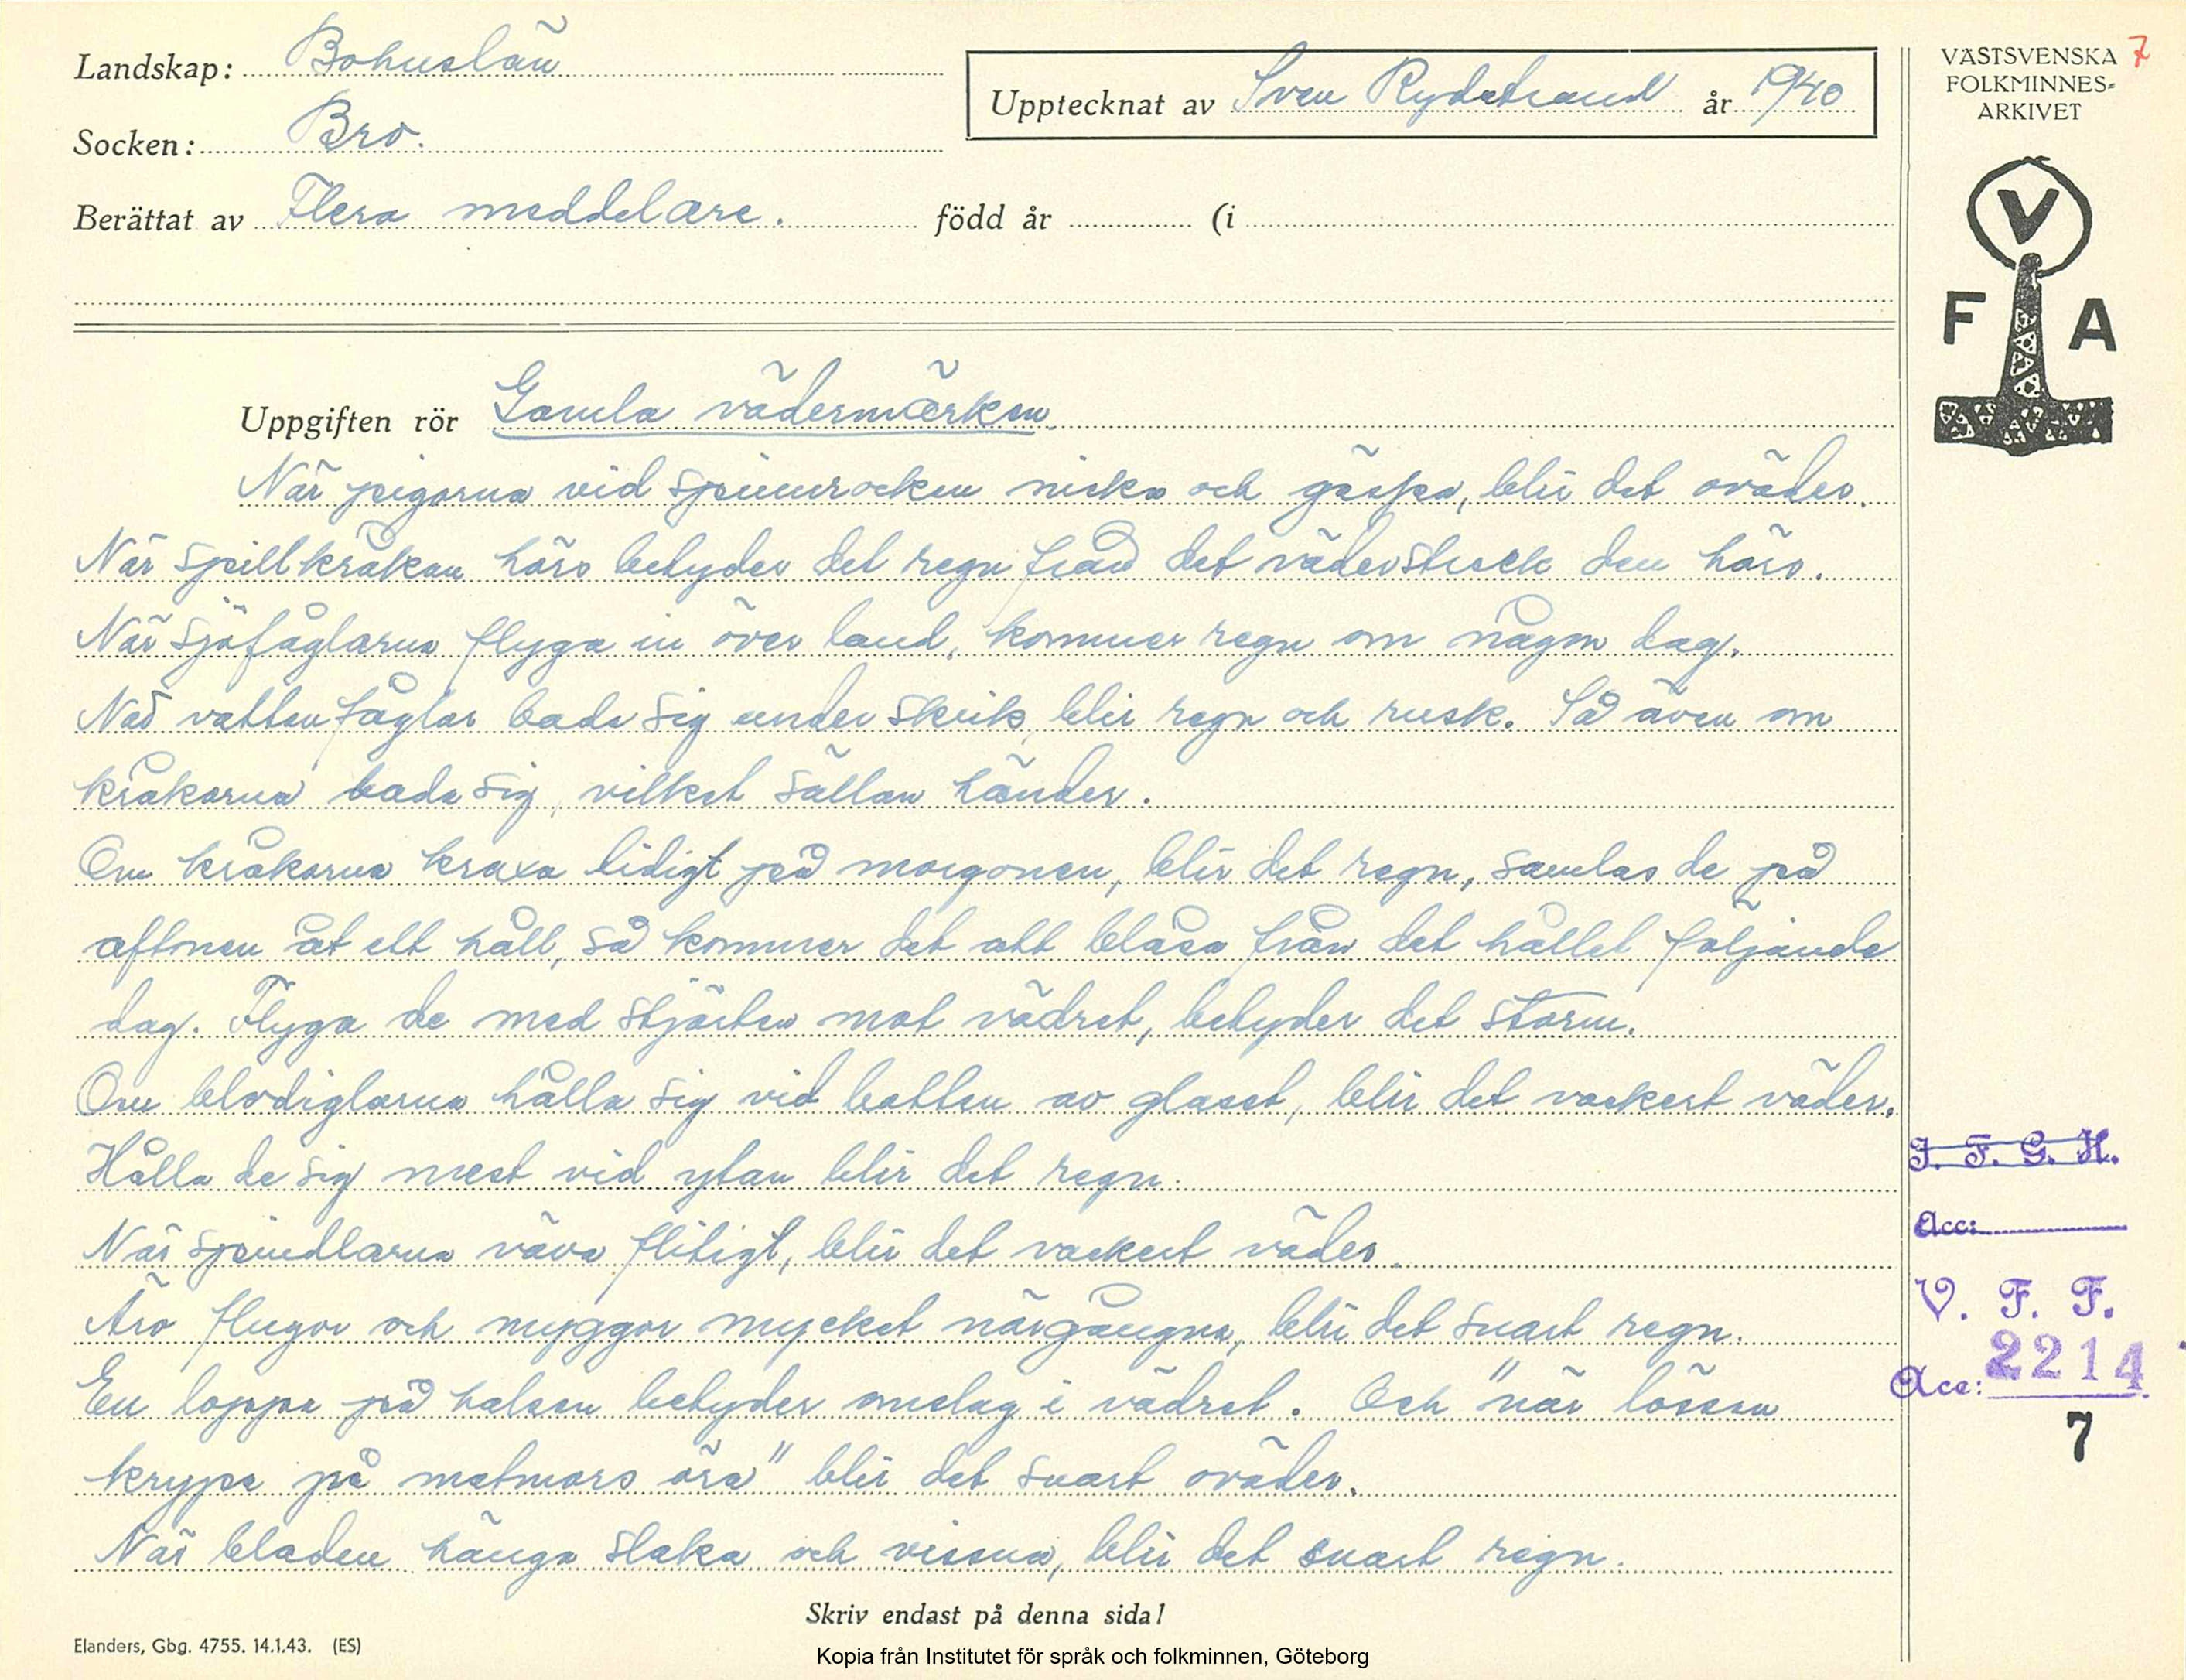 Landskap: Bohuslän
Socken: Bro.
Berättat av Flera meddelare. född år (i
Upptecknat av Sven Rydstrand år 1940
VÄSTSVENSKA 7
FOLKMINNES-
ARKIVET
V
F A
Uppgiften rör Gamla vädermärken
När pigorna vid spinnrocken nicka och gäspa, blir det oväder.
När spillkråkan hörs betyder det regn från det väderstreck den hörs.
När sjöfåglarna flyga in över land, kommer regn om någon dag.
När vattenfåglar bada sig under skrik, blir regn och rusk. Så även om
kråkorna bada sig, vilket sällan händer.
Om kråkorna kraxa tidigt på morgonen, blir det regn, samlas de på
aftonen åt ett håll, så kommer det att blåsa från det hållet följande
dag. Flyga de med stjärten mot vädret, betyder det storm.
Om blodiglarna hålla sig vid botten av glaset, blir det vackert väder.
Hålla de sig mest vid ytan blir det regn.
När spindlarna väva flitigt, blir det vackert väder.
Äro flugor och myggor mycket närgångna, blir det snart regn.
En loppa på halsen betyder omslag i vädret. Och "när lössen
krypa på matmors öra" blir det snart oväder.
När bladen hänga slaka och vissna, blir det snart regn.
I. F. G. H.
Acc:
V. F. F.
Acc: 2214
7
Skriv endast på denna sida!
Elanders, Gbg. 4755. 14.1.43. (ES)
Kopia från Institutet för språk och folkminnen, Göteborg